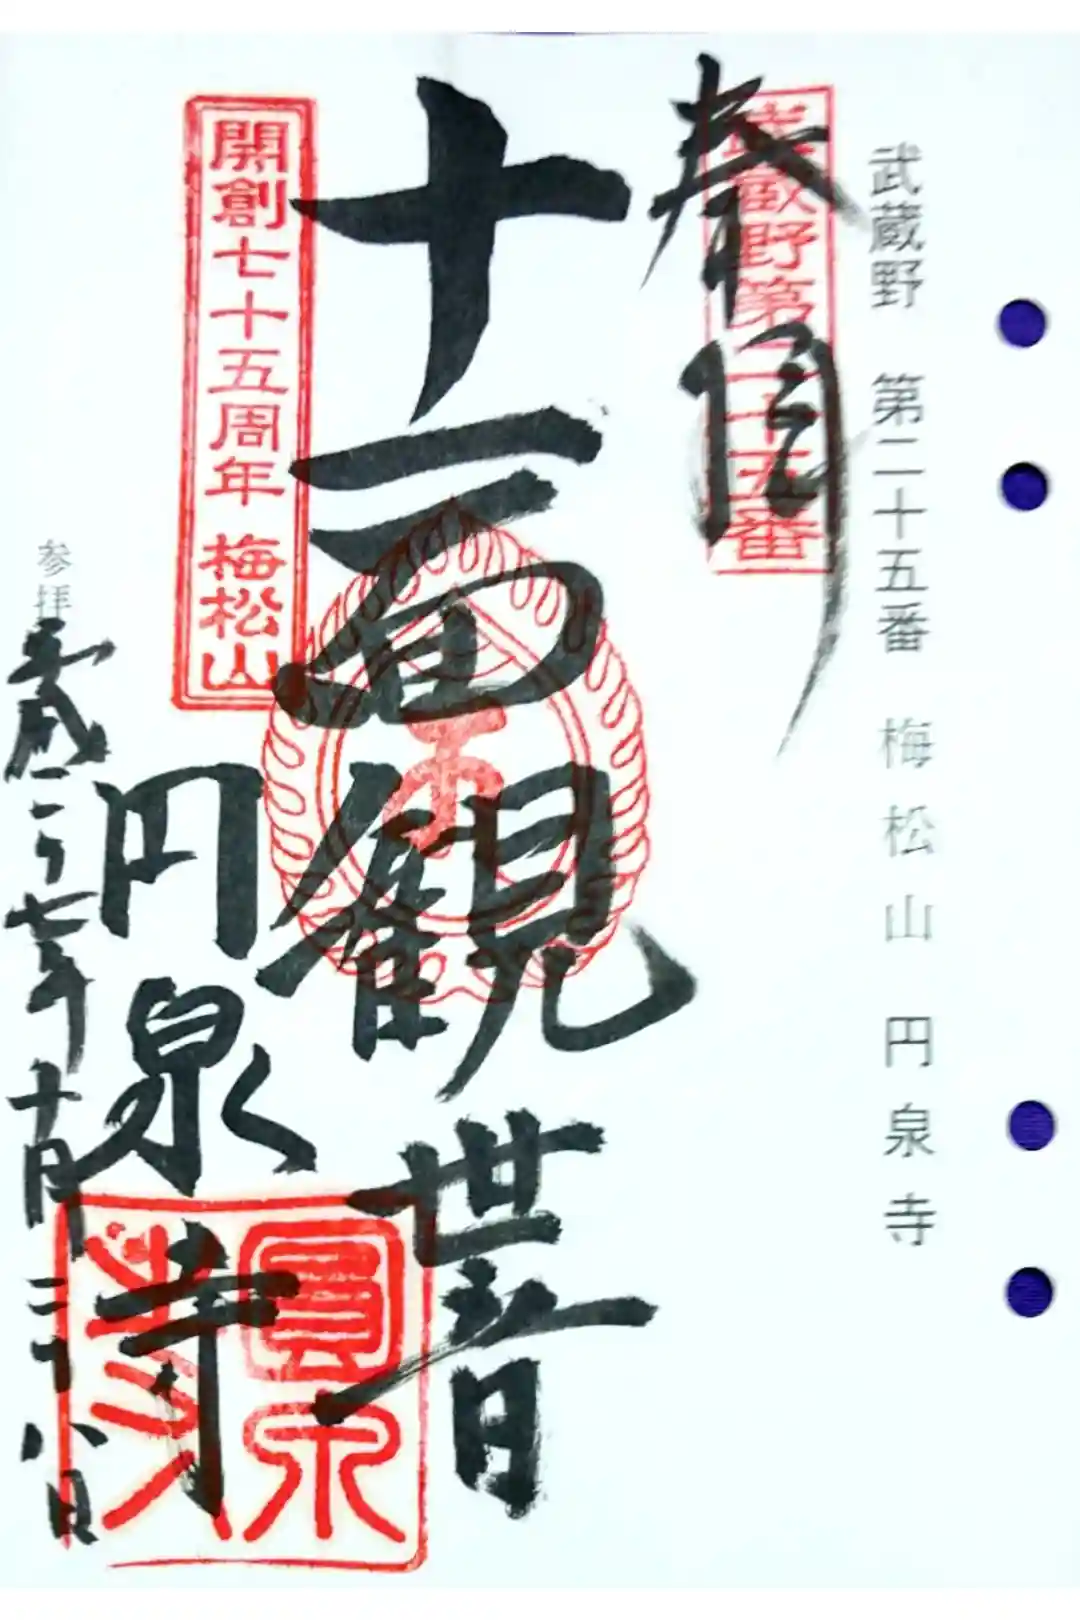 武蔵野 第二十五番 梅松山 円泉寺
武蔵野第二十五番
奉
十一面観世音
開創七十五周年 梅松山
円泉寺
圓泉
参拝 平成二十七年十月二十八日